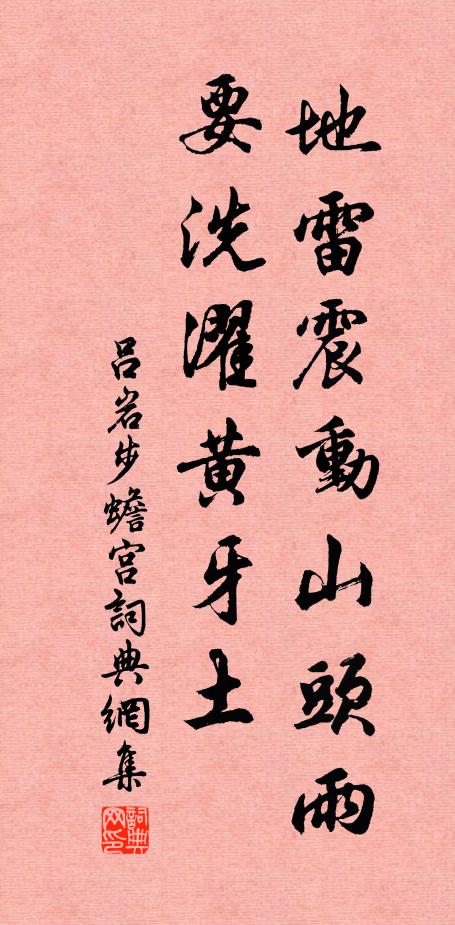 地雷震動山頭雨
要洗濯黄牙土
吕岩步蟾宫詞典網集
詞典网印